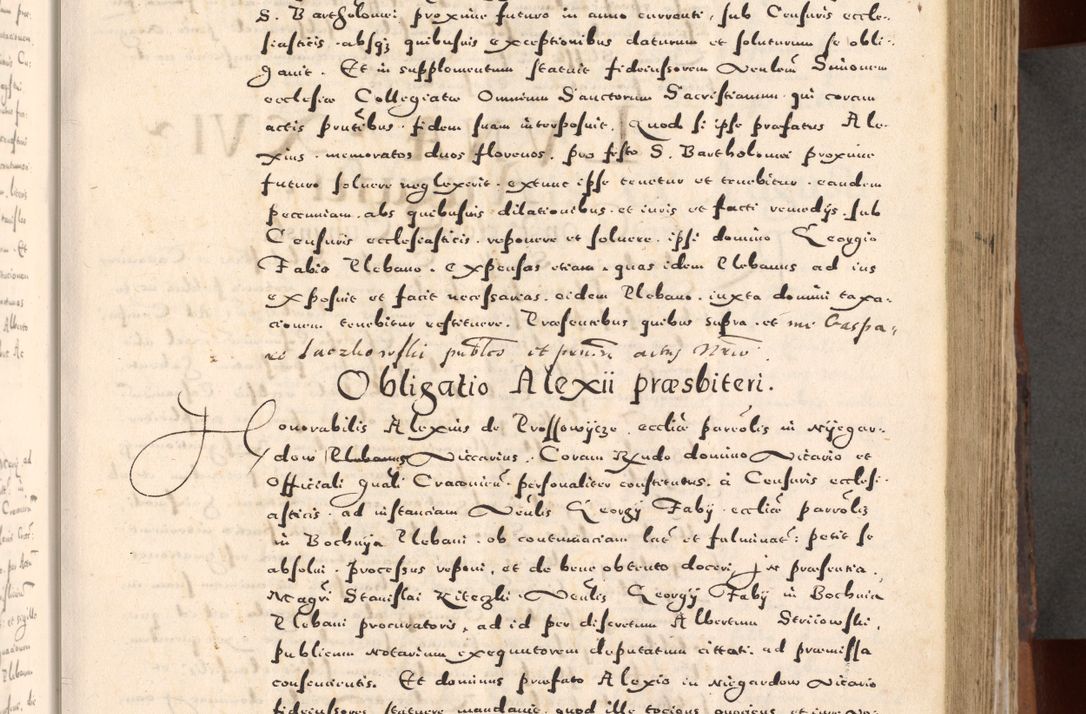 S. Bartholomei proxime futuro in anno currenti, sub Censuris eccle-
siasticis absq; quibusuis exceptionibus daturum et soluturum se obli-
gauit. Et in supplementum statuit fideiussorem Venlem Simonem
ecclesiæ Collegiatæ Omnium Sanctorum Sacristianum qui coram
actis pñtibus fidem suam interposuit. Quod si ipse præfatus Ale-
xius memoratos duos florenos, pro festo S. Bartholomei proxime
futuro soluere neglexerit extunc ipse tenetur et tenebitur eandem
pecuniam abs quibusuis dilationibus et iuris et facti remedijs sub
Censuris ecclesiasticis reponere et soluere ipsi domino Georgio
Fabio Plebano. expensas etiam quas idem Plebanus ad ius
exposuit et facit necessarias eidem Plebano iuxta domini taxa-
cionem tenebitur restituere. Præsentibus quibus supra et me Caspa-
re Laczkowski publco et pnti actus Nrio.
Obligatio Alexii præsbiteri.
Honorabilis Alexius de Prossowijcze ecclïæ parrölis in Nijegar-
dow Plebanus Viccarius. Coram Rndo domino Vicario et
Officiali Gnäli Cracouien personaliter constitutus à Censuris ecclesi-
asticis ad instanciam Venlis Georgij Fabij ecclïæ parrölis
in Bochnija Plebani ob contumaciam lat et fulminat: petit se
absolui processus reponi, et de bene obtento doceri, In præsentia
Magri Stanislai Kiteczki Venlis Georgij Fabij in Bochnia
Plebani procuratoris, ad id per discretum Albertum Strijowski,
publicum Notarium exequutorem deputatum cittati ad præmissa
consencientis. Et dominus præfato Alexio in Niegardow Vicario
fideiussores statuere mandauit quod ille tocies quocies